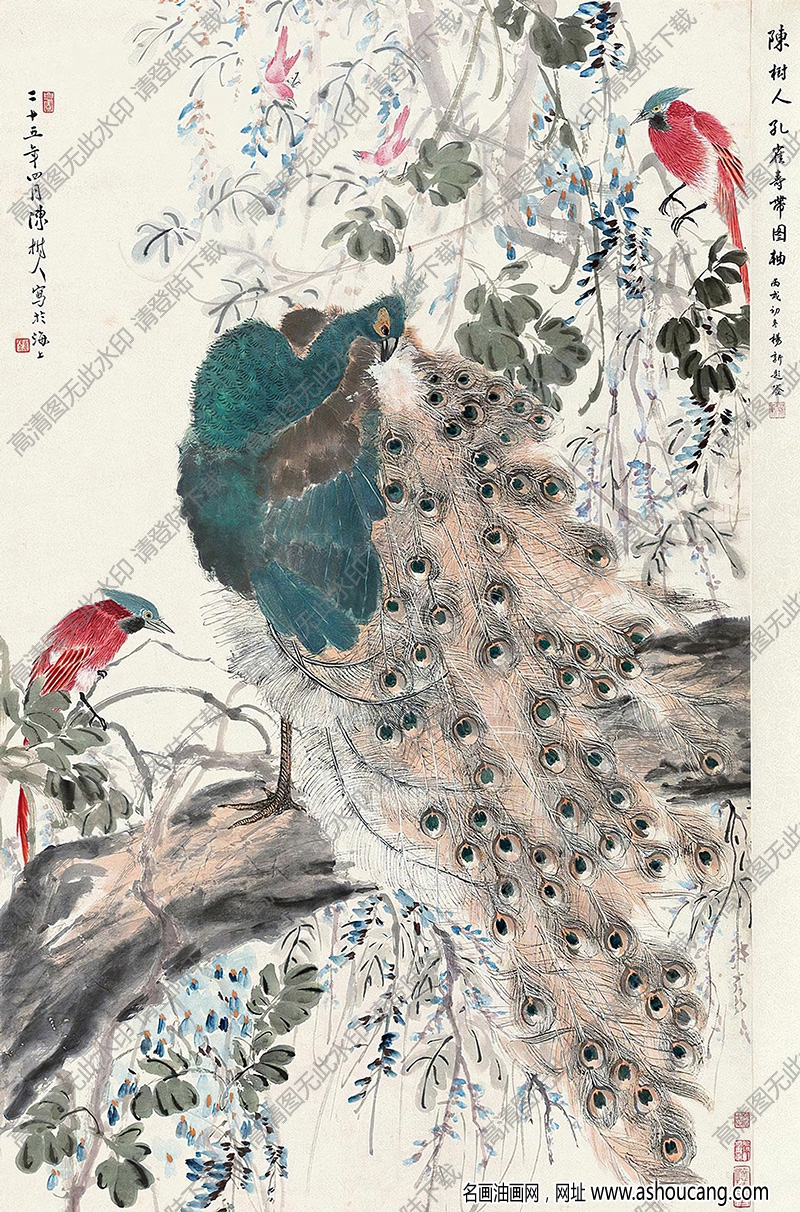 陳樹人孔雀壽帶图軸
丙戌初冬楊新題簽
二十五年四月陳樹人寫於海上
高清图无此水印 请登陆下载
名画油画网，网址 www.ashoucang.com